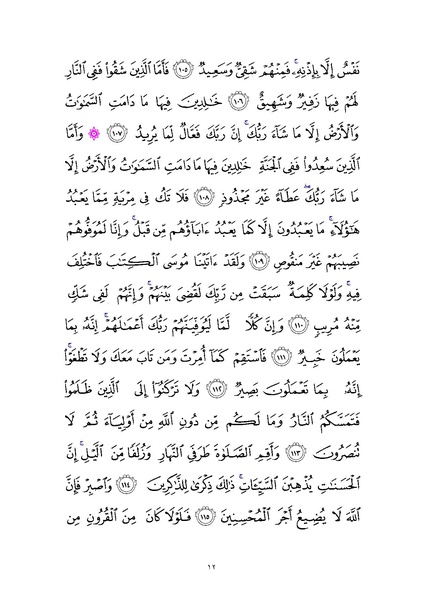 نَفْسٌ إِلَّا بِإِذْنِهِۦۚ فَمِنْهُمْ شَقِىٌّ وَسَعِيدٌ ۝١٠٥ فَأَمَّا ٱلَّذِينَ شَقُوا۟ فَفِى ٱلنَّارِ
لَهُمْ فِيهَا زَفِيرٌ وَشَهِيقٌ ۝١٠٦ خَـٰلِدِينَ فِيهَا مَا دَامَتِ ٱلسَّمَـٰوَٰتُ
وَٱلْأَرْضُ إِلَّا مَا شَآءَ رَبُّكَۚ إِنَّ رَبَّكَ فَعَّالٌ لِّمَا يُرِيدُ ۝١٠٧ ۞ وَأَمَّا
ٱلَّذِينَ سُعِدُوا۟ فَفِى ٱلْجَنَّةِ خَـٰلِدِينَ فِيهَا مَا دَامَتِ ٱلسَّمَـٰوَٰتُ وَٱلْأَرْضُ إِلَّا
مَا شَآءَ رَبُّكَۖ عَطَآءً غَيْرَ مَجْذُوذٍ ۝١٠٨ فَلَا تَكُ فِى مِرْيَةٍ مِّمَّا يَعْبُدُ
هَـٰٓؤُلَآءِۚ مَا يَعْبُدُونَ إِلَّا كَمَا يَعْبُدُ ءَابَآؤُهُم مِّن قَبْلُۚ وَإِنَّا لَمُوَفُّوهُمْ
نَصِيبَهُمْ غَيْرَ مَنقُوصٍ ۝١٠٩ وَلَقَدْ ءَاتَيْنَا مُوسَى ٱلْكِتَـٰبَ فَٱخْتُلِفَ
فِيهِۚ وَلَوْلَا كَلِمَةٌ سَبَقَتْ مِن رَّبِّكَ لَقُضِىَ بَيْنَهُمْۚ وَإِنَّهُمْ لَفِى شَكٍّ
مِّنْهُ مُرِيبٍ ۝١١٠ وَإِنَّ كُلًّا لَّمَّا لَيُوَفِّيَنَّهُمْ رَبُّكَ أَعْمَـٰلَهُمْۚ إِنَّهُۥ بِمَا
يَعْمَلُونَ خَبِيرٌ ۝١١١ فَٱسْتَقِمْ كَمَآ أُمِرْتَ وَمَن تَابَ مَعَكَ وَلَا تَطْغَوْا۟ۚ
إِنَّهُۥ بِمَا تَعْمَلُونَ بَصِيرٌ ۝١١٢ وَلَا تَرْكَنُوٓا۟ إِلَى ٱلَّذِينَ ظَلَمُوا۟
فَتَمَسَّكُمُ ٱلنَّارُ وَمَا لَكُم مِّن دُونِ ٱللَّهِ مِنْ أَوْلِيَآءَ ثُمَّ لَا
تُنصَرُونَ ۝١١٣ وَأَقِمِ ٱلصَّلَوٰةَ طَرَفَىِ ٱلنَّهَارِ وَزُلَفًا مِّنَ ٱلَّيْلِۚ إِنَّ
ٱلْحَسَنَـٰتِ يُذْهِبْنَ ٱلسَّيِّـَٔاتِۚ ذَٰلِكَ ذِكْرَىٰ لِلذَّٰكِرِينَ ۝١١٤ وَٱصْبِرْ فَإِنَّ
ٱللَّهَ لَا يُضِيعُ أَجْرَ ٱلْمُحْسِنِينَ ۝١١٥ فَلَوْلَا كَانَ مِنَ ٱلْقُرُونِ مِن
١٢